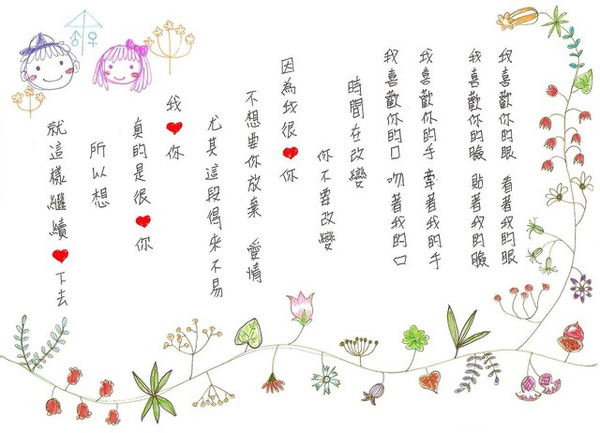 我喜歡你的眼 看著我的眼
我喜歡你的臉 貼著我的臉
我喜歡你的手 牽著我的手
我喜歡你的口 吻著我的口
時間在改變
你不要改變
因為我很❤你
不想要你放棄 愛情
尤其這段得來不易
我❤你
真的是很❤你
所以想
就這樣繼續❤下去